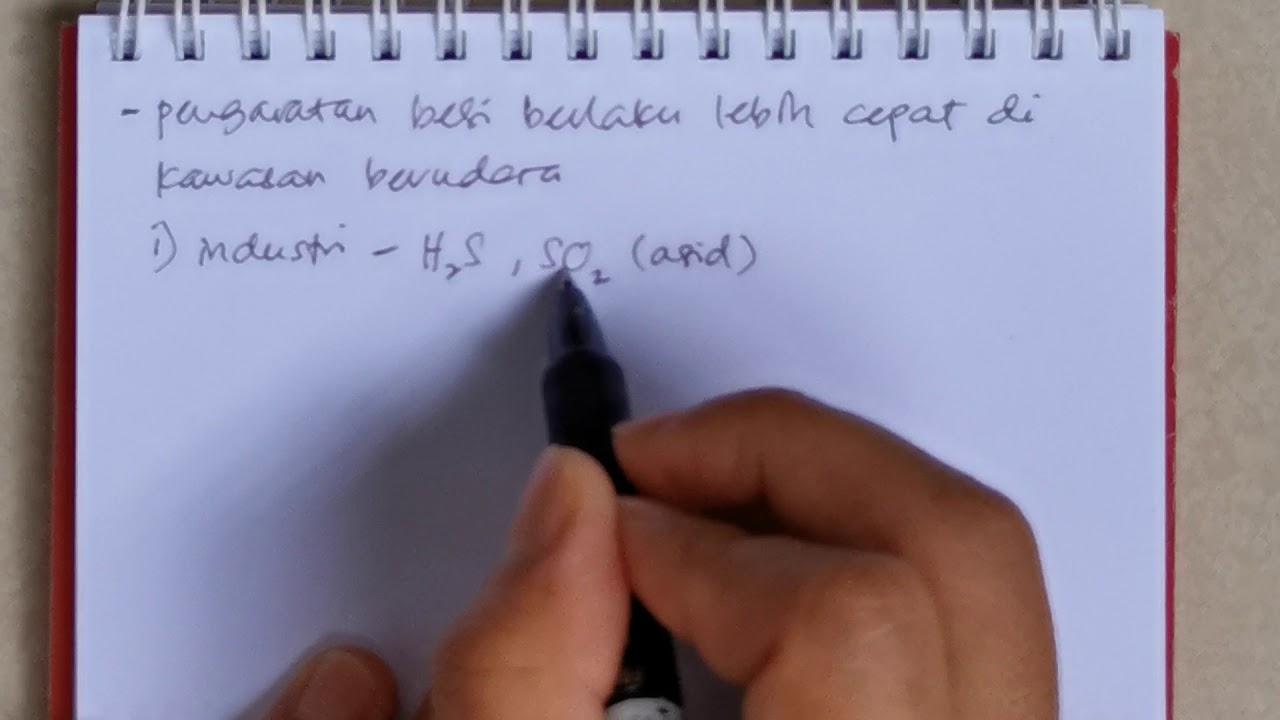 - pengaratan besi berlaku lebih cepat di
kawasan berudara
i) industri - H₂S , SO₂ (asid)